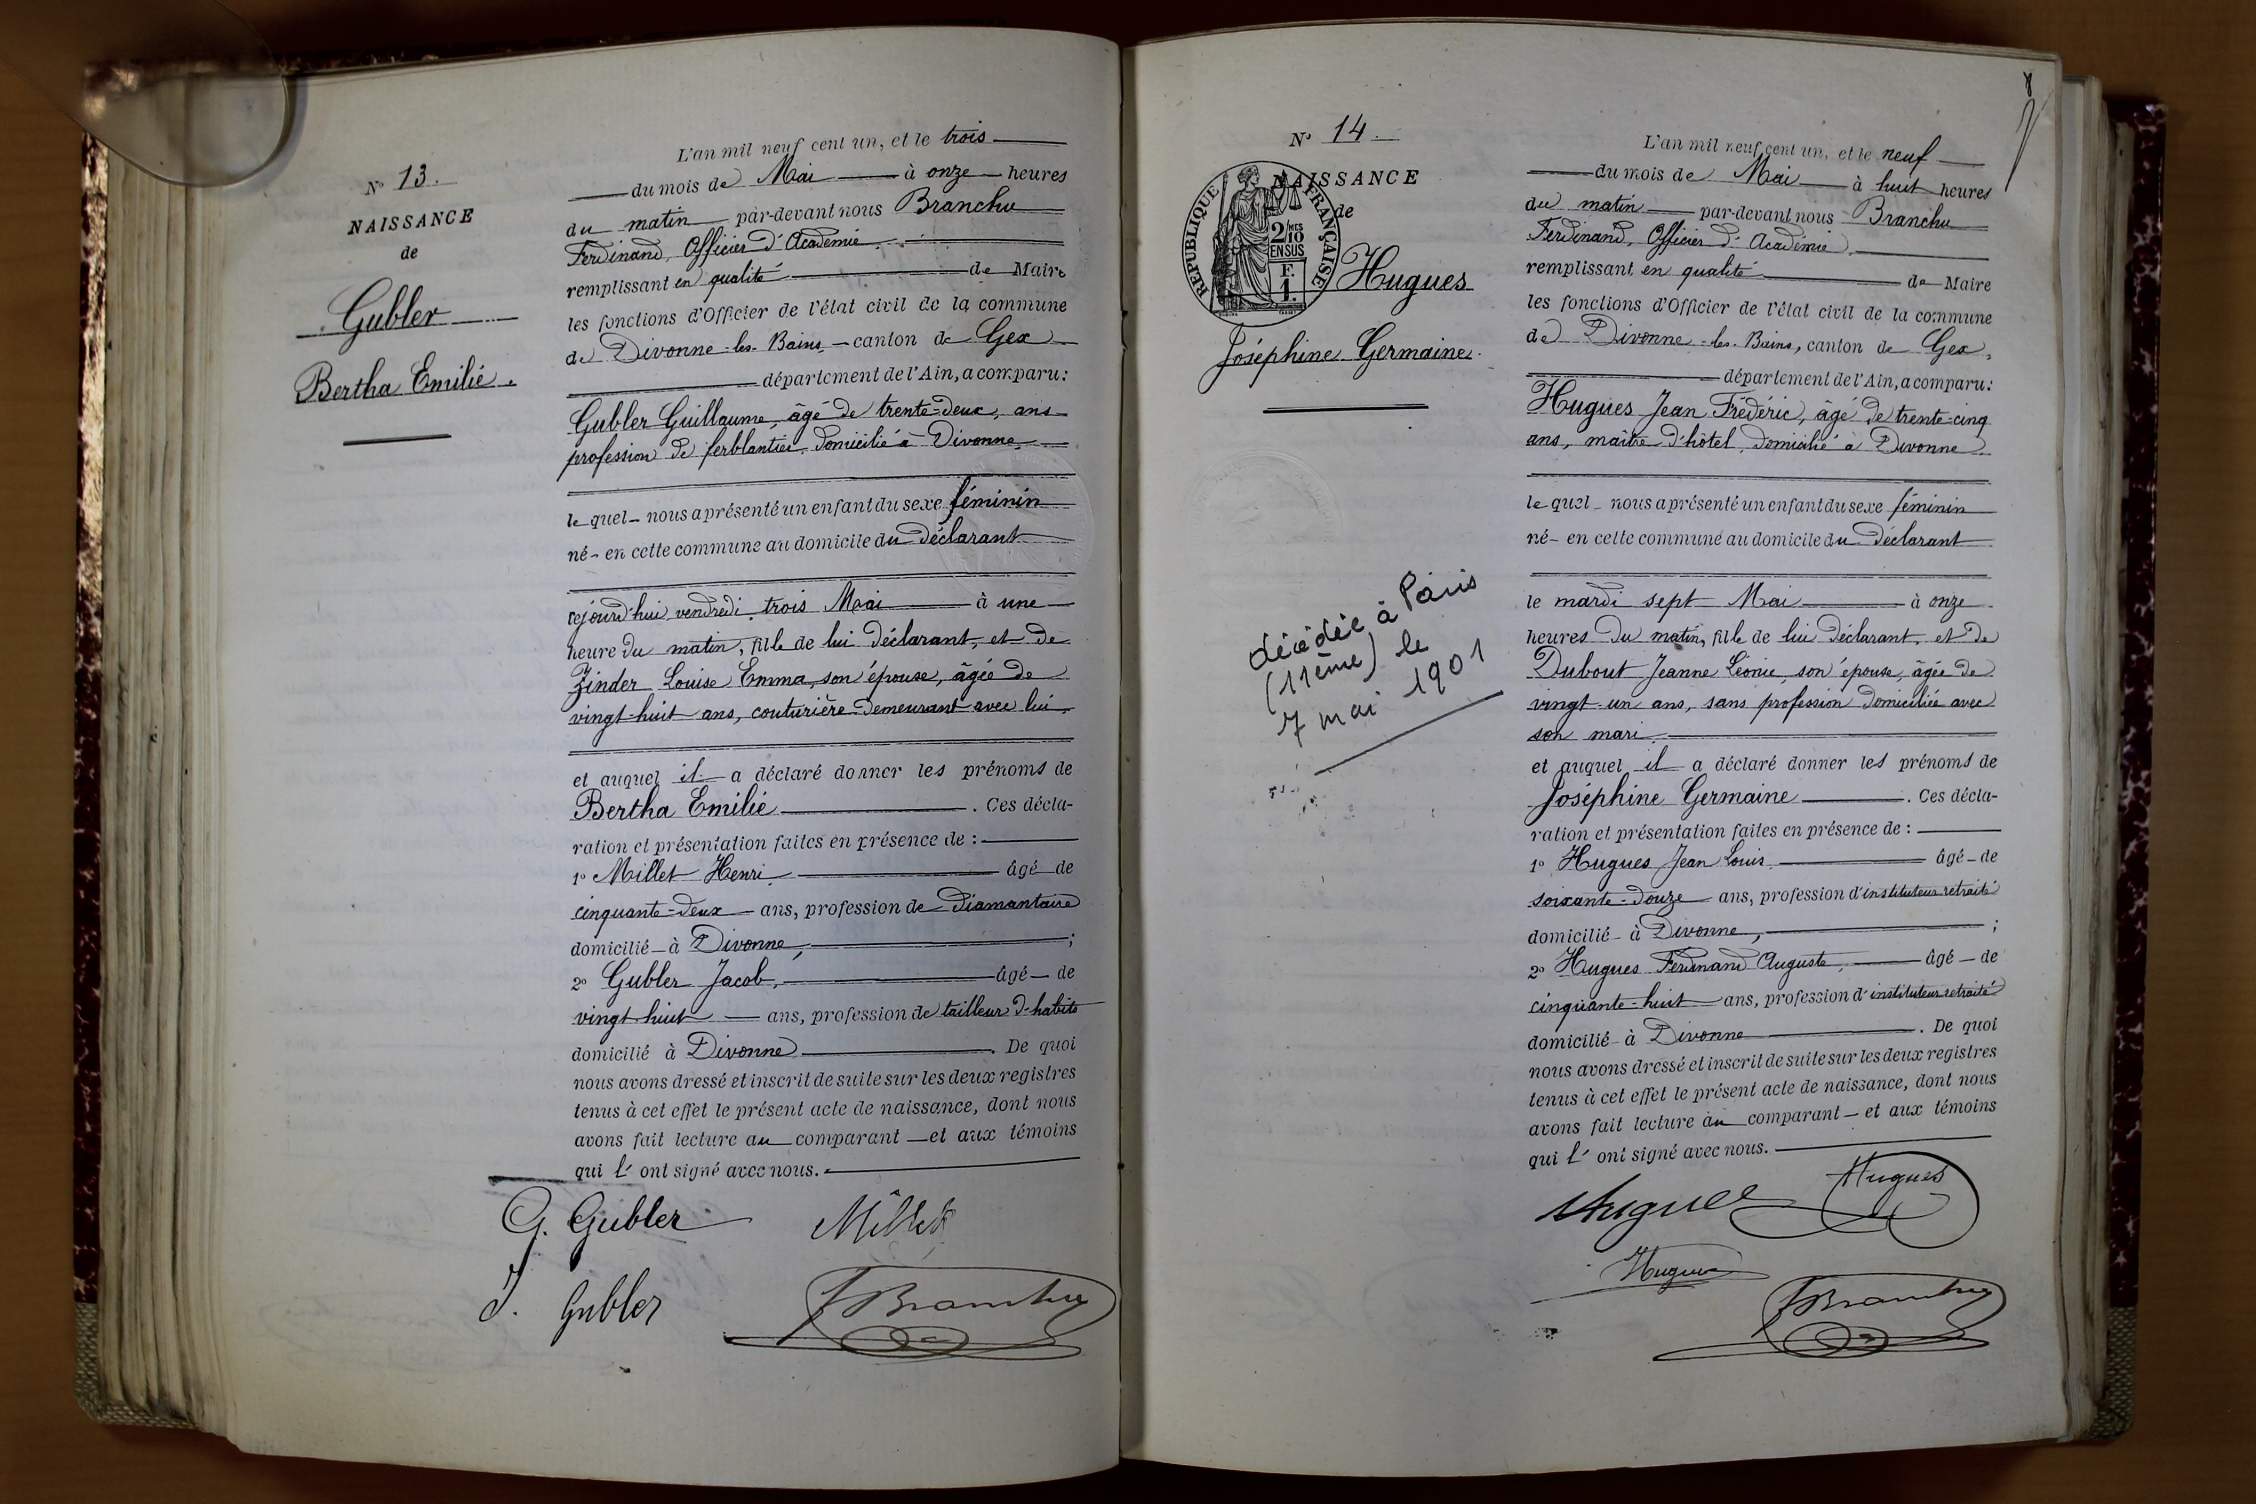 N° 13.
NAISSANCE
de
Gubler
Bertha Emilie.
L'an mil neuf cent un, et le trois
du mois de Mai à onze heures
du matin par-devant nous Branchu
Ferdinand, Officier d'Académie
remplissant en qualité de Maire
les fonctions d'Officier de l'état civil de la commune
de Divonne-les-Bains, canton de Gex
département de l'Ain, a comparu:
Gubler Guillaume, âgé de trente-deux, ans
profession de ferblantier domicilié à Divonne,
lequel nous a présenté un enfant du sexe féminin
né en cette commune au domicile du déclarant
cejourd'hui vendredi trois Mai à une
heure du matin, fille de lui déclarant, et de
Zinder Louise Emma, son épouse, âgée de
vingt-huit ans, couturière demeurant avec lui,
et auquel il a déclaré donner les prénoms de
Bertha Emilie. Ces décla-
ration et présentation faites en présence de :
1° Millet Henri âgé de
cinquante-deux ans, profession de Diamantaire
domicilié à Divonne, ;
2° Gubler Jacob, âgé de
vingt huit ans, profession de tailleur d'habits
domicilié à Divonne. De quoi
nous avons dressé et inscrit de suite sur les deux registres
tenus à cet effet le présent acte de naissance, dont nous
avons fait lecture au comparant et aux témoins
qui l' ont signé avec nous.
G. Gubler Millet
J. Gubler F Branchu
8
N° 14.
NAISSANCE
de
RÉPUBLIQUE FRANÇAISE
2/10 MES
EN SUS
F.
1.
Hugues
Joséphine Germaine.
décédée à Paris
(11ème) le
7 mai 1901
L'an mil neuf cent un, et le neuf
du mois de Mai à huit heures
du matin par-devant nous Branchu
Ferdinand, Officier d'Académie,
remplissant en qualité de Maire
les fonctions d'Officier de l'état civil de la commune
de Divonne-les-Bains, canton de Gex,
département de l'Ain, a comparu:
Hugues Jean Frédéric, âgé de trente-cinq
ans, maître d'hôtel, domicilié à Divonne
lequel nous a présenté un enfant du sexe féminin
né en cette commune au domicile du déclarant
le mardi sept Mai à onze
heures du matin, fille de lui déclarant, et de
Dubout Jeanne Léonie, son épouse, âgée de
vingt-un ans, sans profession domiciliée avec
son mari
et auquel il a déclaré donner les prénoms de
Joséphine Germaine. Ces décla-
ration et présentation faites en présence de :
1° Hugues Jean Louis âgé de
soixante-douze ans, profession d'instituteur retraité
domicilié à Divonne, ;
2° Hugues Ferdinand Auguste, âgé de
cinquante-huit ans, profession d'instituteur retraité
domicilié à Divonne. De quoi
nous avons dressé et inscrit de suite sur les deux registres
tenus à cet effet le présent acte de naissance, dont nous
avons fait lecture au comparant et aux témoins
qui l' ont signé avec nous.
Hugues Hugues
Hugues
F Branchu